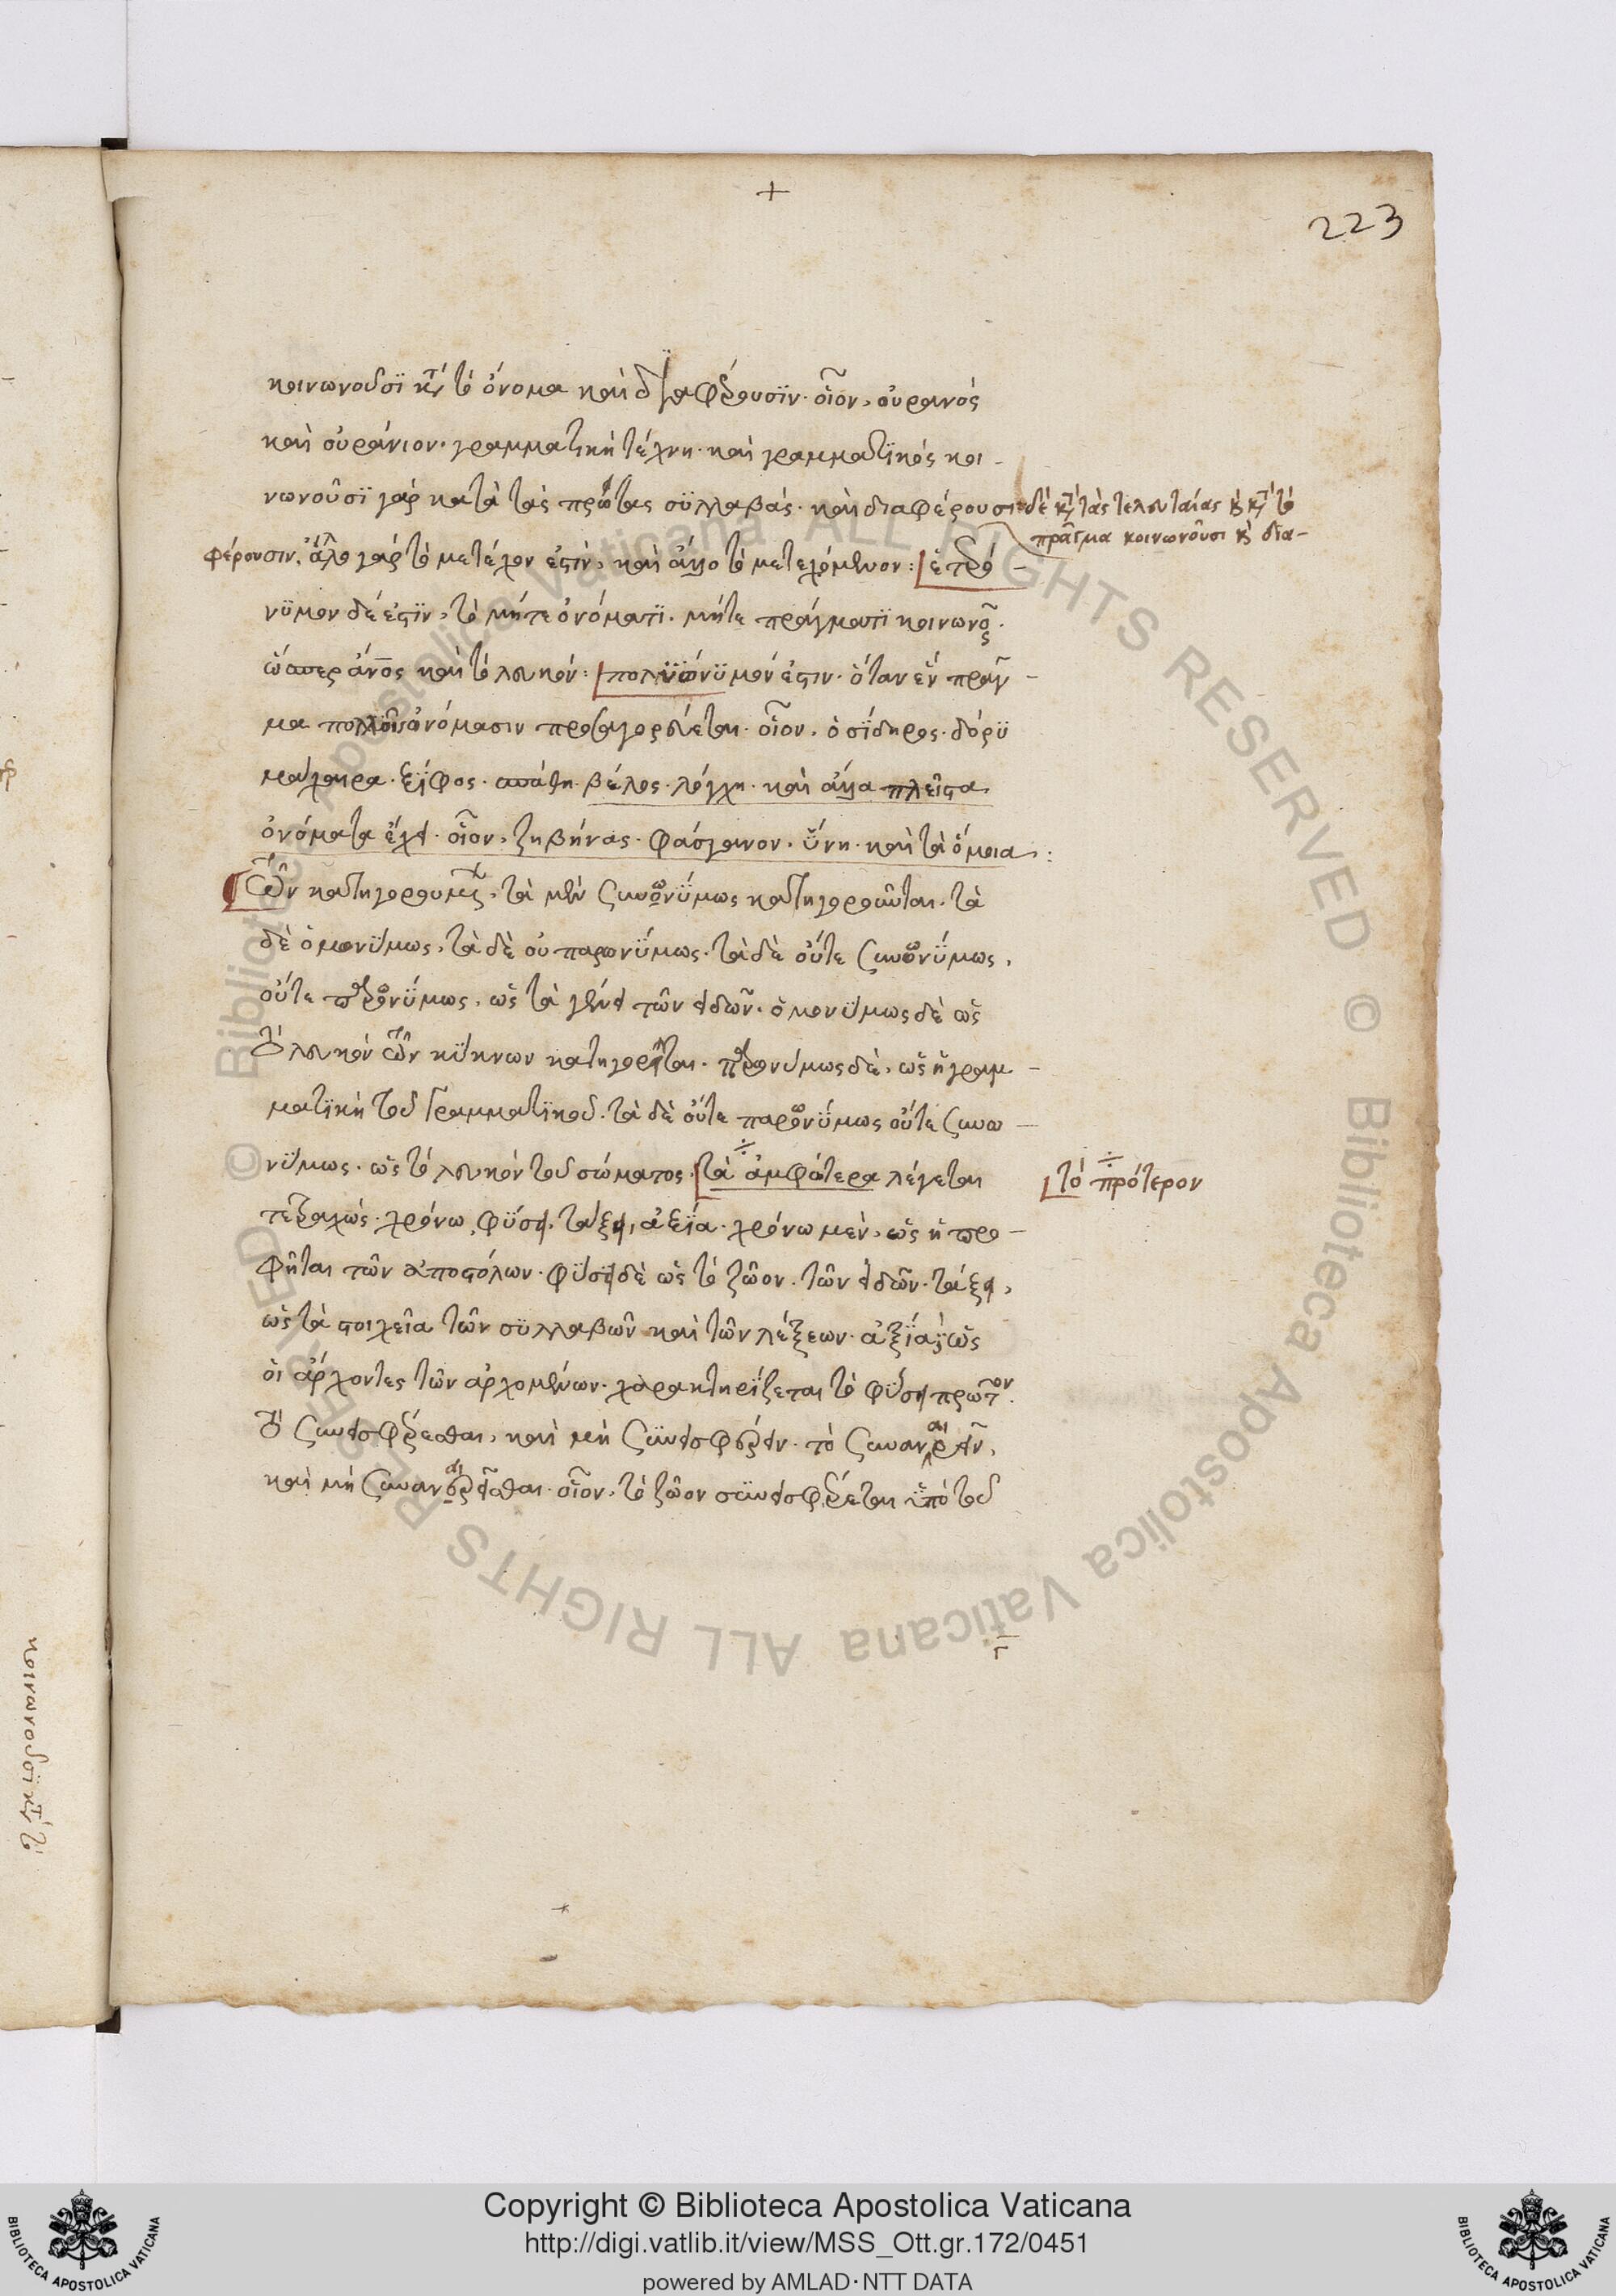 +
223
κοινωνοῦσϊ κατὰ τὸ ὄνομα καὶ δϊαφέρουσϊν· οἷον, οὐρανὸς
καὶ οὐράνιον· γραμματικὴ τέχνη· καὶ γραμματϊκός κοι-
νωνοῦσϊ γὰρ κατὰ τὰς πρώτας σϋλλαβάς· καὶ διαφέρουσι δὲ κατὰ τὰς τελευταίας καὶ κατὰ τὸ
πρᾶγμα κοινωνοῦσι καὶ δια-
φέρουσιν. ἄλλο γὰρ τὸ μετέχον ἐστὶν, καὶ ἄλλο τὸ μετεχόμενον: ἑτερώ-
νϋμον δέ ἐστϊν, τὸ μήτε ὀνόματϊ· μήτε πράγματϊ κοινωνοῦν·
ὥσπερ ἄνος καὶ τὸ λευκόν: πολϋώνϋμόν ἐστιν· ὅταν ἓν πρᾶγ-
μα πολλοῖς ὀνόμασιν προσαγορεύεται· οἷον, ὁ σΐδηρος· δόρϋ
μάχαιρα· ξΐφος· σπάθη· βέλος· λόγχη· καὶ ἄλλα πλεῖστα
ὀνόματα ἔχει· οἷον, ζηβήνας· φάσγανον· ὕνη· καὶ τὰ ὅμοια:
Τῶν κατηγορουμένων, τὰ μὲν συνωνΰμως κατηγοροῦνται· τὰ
δὲ ὁμονΰμως, τὰ δὲ οὐ παρωνΰμως· τὰ δὲ οὔτε συνωνΰμως,
οὔτε παρωνΰμως, ὡς τὰ γένει τῶν εἰδῶν· ὁμονΰμως δὲ ὡς
τὸ λευκόν τῶν κΰκνων κατηγορεῖται· παρονύμως δὲ, ὡς ἡ γραμ-
ματϊκὴ τοῦ Γραμματϊκοῦ· τὰ δὲ οὔτε παρωνΰμως οὔτε συνω-
νΰμως· ὡς τὸ λευκόν τοῦ σώματος· τὰ ἀμφότερα λέγεται
τὸ πρότερον
τετραχῶς· χρόνω, φΰσει, τάξει, ἀξΐα· χρόνω μὲν, ὡς ἡ προ-
φῆται τῶν ἀποστόλων· φΰσει δὲ ὡς τὸ ζῶον· τῶν εἰδῶν· τάξει,
ὡς τὰ στοιχεῖα τῶν σϋλλαβῶν καὶ τῶν λέξεων· ἀξΐα, ὡς
οἱ ἄρχοντες τῶν ἀρχομένων· χαρακτηρΐζεται τὸ φΰσει πρῶτον·
τὸ συνεισφέρεσθαι, καὶ μὴ συνεισφέρειν· τὸ συναναιρεῖν,
καὶ μὴ συναναιρεῖσθαι· οἷον, τὸ ζῶον σϋνεισφέρεται ὑπὸ τοῦ
κοινωνοῦσϊ κατὰ τὸ
Copyright © Biblioteca Apostolica Vaticana
http://digi.vatlib.it/view/MSS_Ott.gr.172/0451
powered by AMLAD·NTT DATA